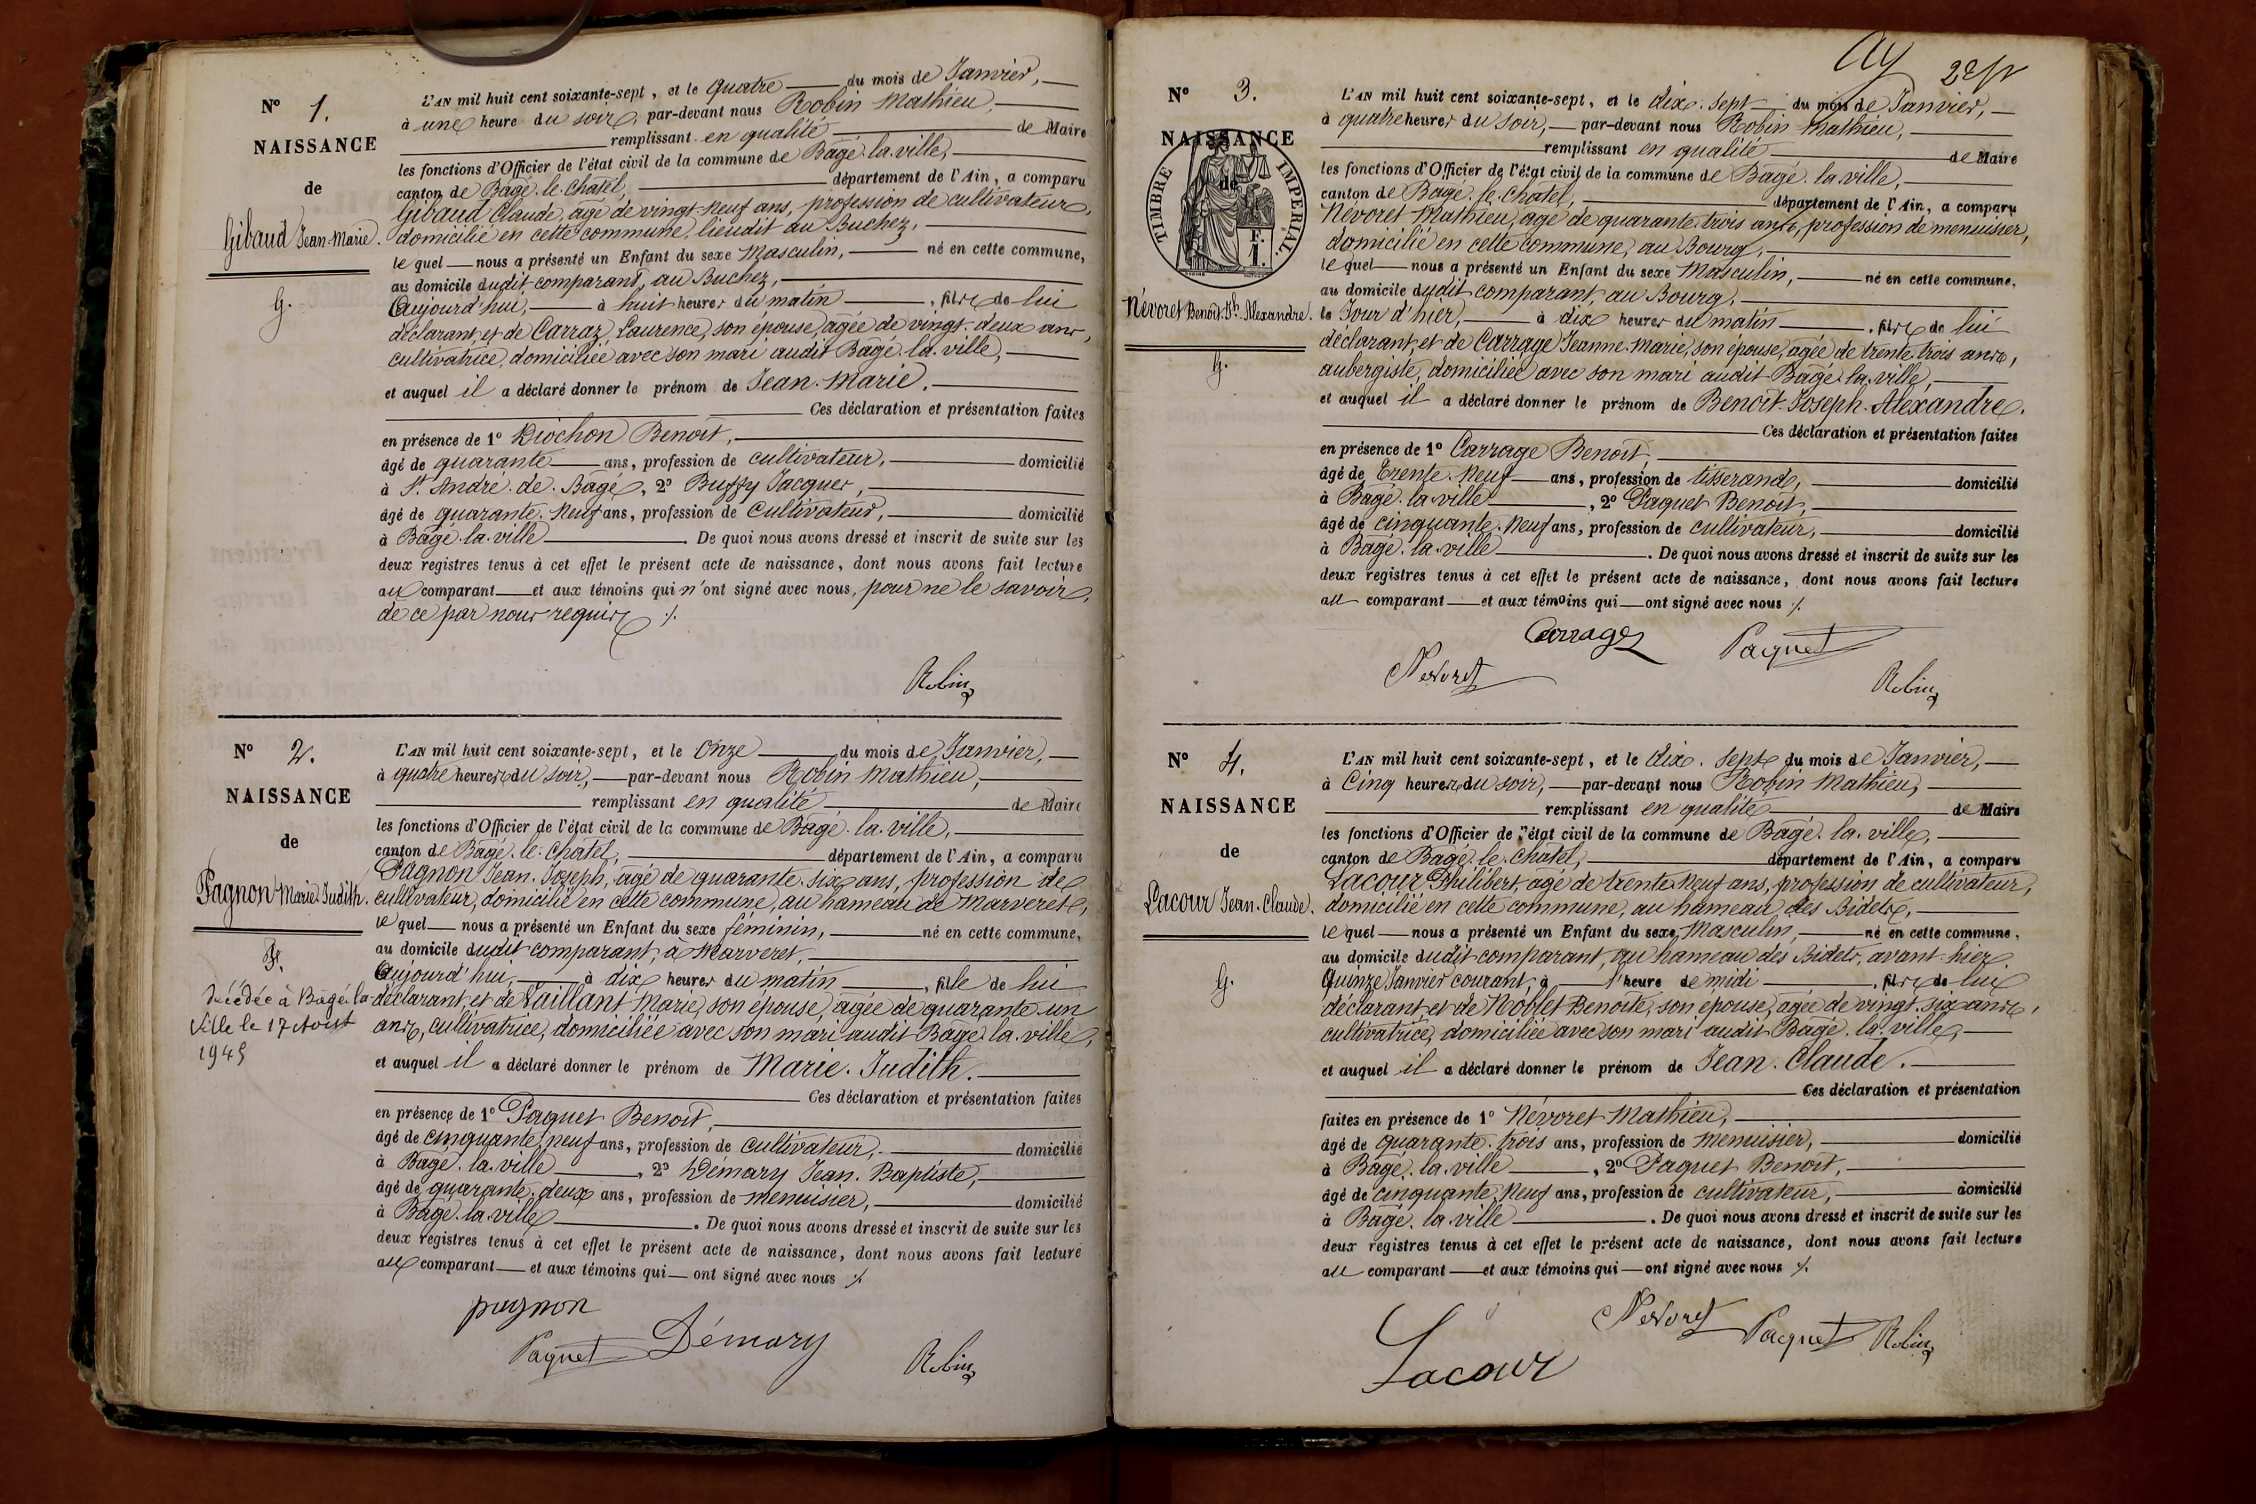 N° 1.
NAISSANCE
de
Gibaud Jean-Marie.
G.
L'AN mil huit cent soixante-sept, et le quatre du mois de Janvier,
à une heure du soir, par-devant nous Robin Mathieu,
remplissant en qualité de Maire
les fonctions d'Officier de l'état civil de la commune de Bagé-la-ville,
canton de Bagé-le-Châtel, département de l'Ain, a comparu
Gibaud Claude, âgé de vingt-neuf ans, profession de cultivateur,
domicilié en cette commune, lieudit au Buchez,
lequel nous a présenté un Enfant du sexe Masculin, né en cette commune,
au domicile dudit comparant, au Buchez,
Aujourd'hui, à huit heures du matin, fils de lui
déclarant, et de Carraz Laurence, son épouse, âgée de vingt-deux ans,
cultivatrice, domiciliée avec son mari audit Bagé-la-ville,
et auquel il a déclaré donner le prénom de Jean-Marie.
Ces déclaration et présentation faites
en présence de 1° Diochon Benoit,
âgé de quarante ans, profession de cultivateur, domicilié
à St. André-de-Bagé, 2° Buffy Jacques,
âgé de quarante-neuf ans, profession de Cultivateur, domicilié
à Bagé-la-ville. De quoi nous avons dressé et inscrit de suite sur les
deux registres tenus à cet effet le présent acte de naissance, dont nous avons fait lecture
au comparant et aux témoins qui n'ont signé avec nous, pour ne le savoir,
de ce par nous requis ./.
Robin
N° 2.
NAISSANCE
de
Pagnon Marie-Judith.
F.
Décédée à Bagé-la
Ville le 17 Aout
1945
L'AN mil huit cent soixante-sept, et le Onze du mois de Janvier,
à quatre heures du soir, par-devant nous Robin Mathieu,
remplissant en qualité de Maire
les fonctions d'Officier de l'état civil de la commune de Bagé-la-ville,
canton de Bagé-le-Châtel, département de l'Ain, a comparu
Pagnon Jean-Joseph, âgé de quarante-six ans, profession de
cultivateur, domicilié en cette commune, au hameau de Marveret,
lequel nous a présenté un Enfant du sexe féminin, né en cette commune,
au domicile dudit comparant, à Marveret,
Aujourd'hui, à dix heures du matin, fille de lui
déclarant, et de Vaillant Marie, son épouse, âgée de quarante-un
ans, cultivatrice, domiciliée avec son mari audit Bagé-la-ville,
et auquel il a déclaré donner le prénom de Marie-Judith.
Ces déclaration et présentation faites
en présence de 1° Paquet Benoit,
âgé de cinquante-neuf ans, profession de cultivateur, domicilié
à Bagé-la-ville, 2° Démary Jean-Baptiste,
âgé de quarante-deux ans, profession de menuisier, domicilié
à Bagé-la-ville. De quoi nous avons dressé et inscrit de suite sur les
deux registres tenus à cet effet le présent acte de naissance, dont nous avons fait lecture
au comparant et aux témoins qui ont signé avec nous ./.
pagnon
Paquet Démary Robin
N° 3.
NAISSANCE
de
TIMBRE IMPERIAL.
F.
1.
Névoret Benoit-Jh-Alexandre.
G.
L'AN mil huit cent soixante-sept, et le dix-sept du mois de Janvier,
à quatre heures du soir, par-devant nous Robin Mathieu,
remplissant en qualité de Maire
les fonctions d'Officier de l'état civil de la commune de Bagé-la-ville,
canton de Bagé-le-Châtel, département de l'Ain, a comparu
Névoret Mathieu, âgé de quarante-trois ans, profession de menuisier,
domicilié en cette commune, au Bourg,
lequel nous a présenté un Enfant du sexe Masculin, né en cette commune,
au domicile dudit comparant, au Bourg,
le Jour d'hier, à dix heures du matin, fils de lui
déclarant, et de Carrage Jeanne-Marie, son épouse, âgée de trente-trois ans,
aubergiste, domiciliée avec son mari audit Bagé-la-ville,
et auquel il a déclaré donner le prénom de Benoit-Joseph-Alexandre.
Ces déclaration et présentation faites
en présence de 1° Carrage Benoit,
âgé de Trente-neuf ans, profession de tisserand, domicilié
à Bagé-la-ville, 2° Paquet Benoit,
âgé de cinquante-neuf ans, profession de cultivateur, domicilié
à Bagé-la-ville. De quoi nous avons dressé et inscrit de suite sur les
deux registres tenus à cet effet le présent acte de naissance, dont nous avons fait lecture
au comparant et aux témoins qui ont signé avec nous ./.
Carrage Paquet
Nevoret Robin
N° 4.
NAISSANCE
de
Lacour Jean-Claude.
G.
L'AN mil huit cent soixante-sept, et le dix-sept du mois de Janvier,
à Cinq heures du soir, par-devant nous Robin Mathieu,
remplissant en qualité de Maire
les fonctions d'Officier de l'état civil de la commune de Bagé-la-ville,
canton de Bagé-le-Châtel, département de l'Ain, a comparu
Lacour Philibert, âgé de trente-neuf ans, profession de cultivateur,
domicilié en cette commune, au hameau des Bidets,
lequel nous a présenté un Enfant du sexe Masculin, né en cette commune,
au domicile dudit comparant, au hameau des Bidets, avant-hier
Quinze Janvier courant, à l'heure de midi, fils de lui
déclarant, et de Noblet Benoite, son épouse, âgée de vingt-six ans,
cultivatrice, domiciliée avec son mari audit Bagé-la-ville,
et auquel il a déclaré donner le prénom de Jean-Claude.
Ces déclaration et présentation
faites en présence de 1° Névoret Mathieu,
âgé de quarante-trois ans, profession de menuisier, domicilié
à Bagé-la-ville, 2° Paquet Benoit,
âgé de cinquante-neuf ans, profession de cultivateur, domicilié
à Bagé-la-ville. De quoi nous avons dressé et inscrit de suite sur les
deux registres tenus à cet effet le présent acte de naissance, dont nous avons fait lecture
au comparant et aux témoins qui ont signé avec nous ./.
Nevoret Paquet Robin
Lacour